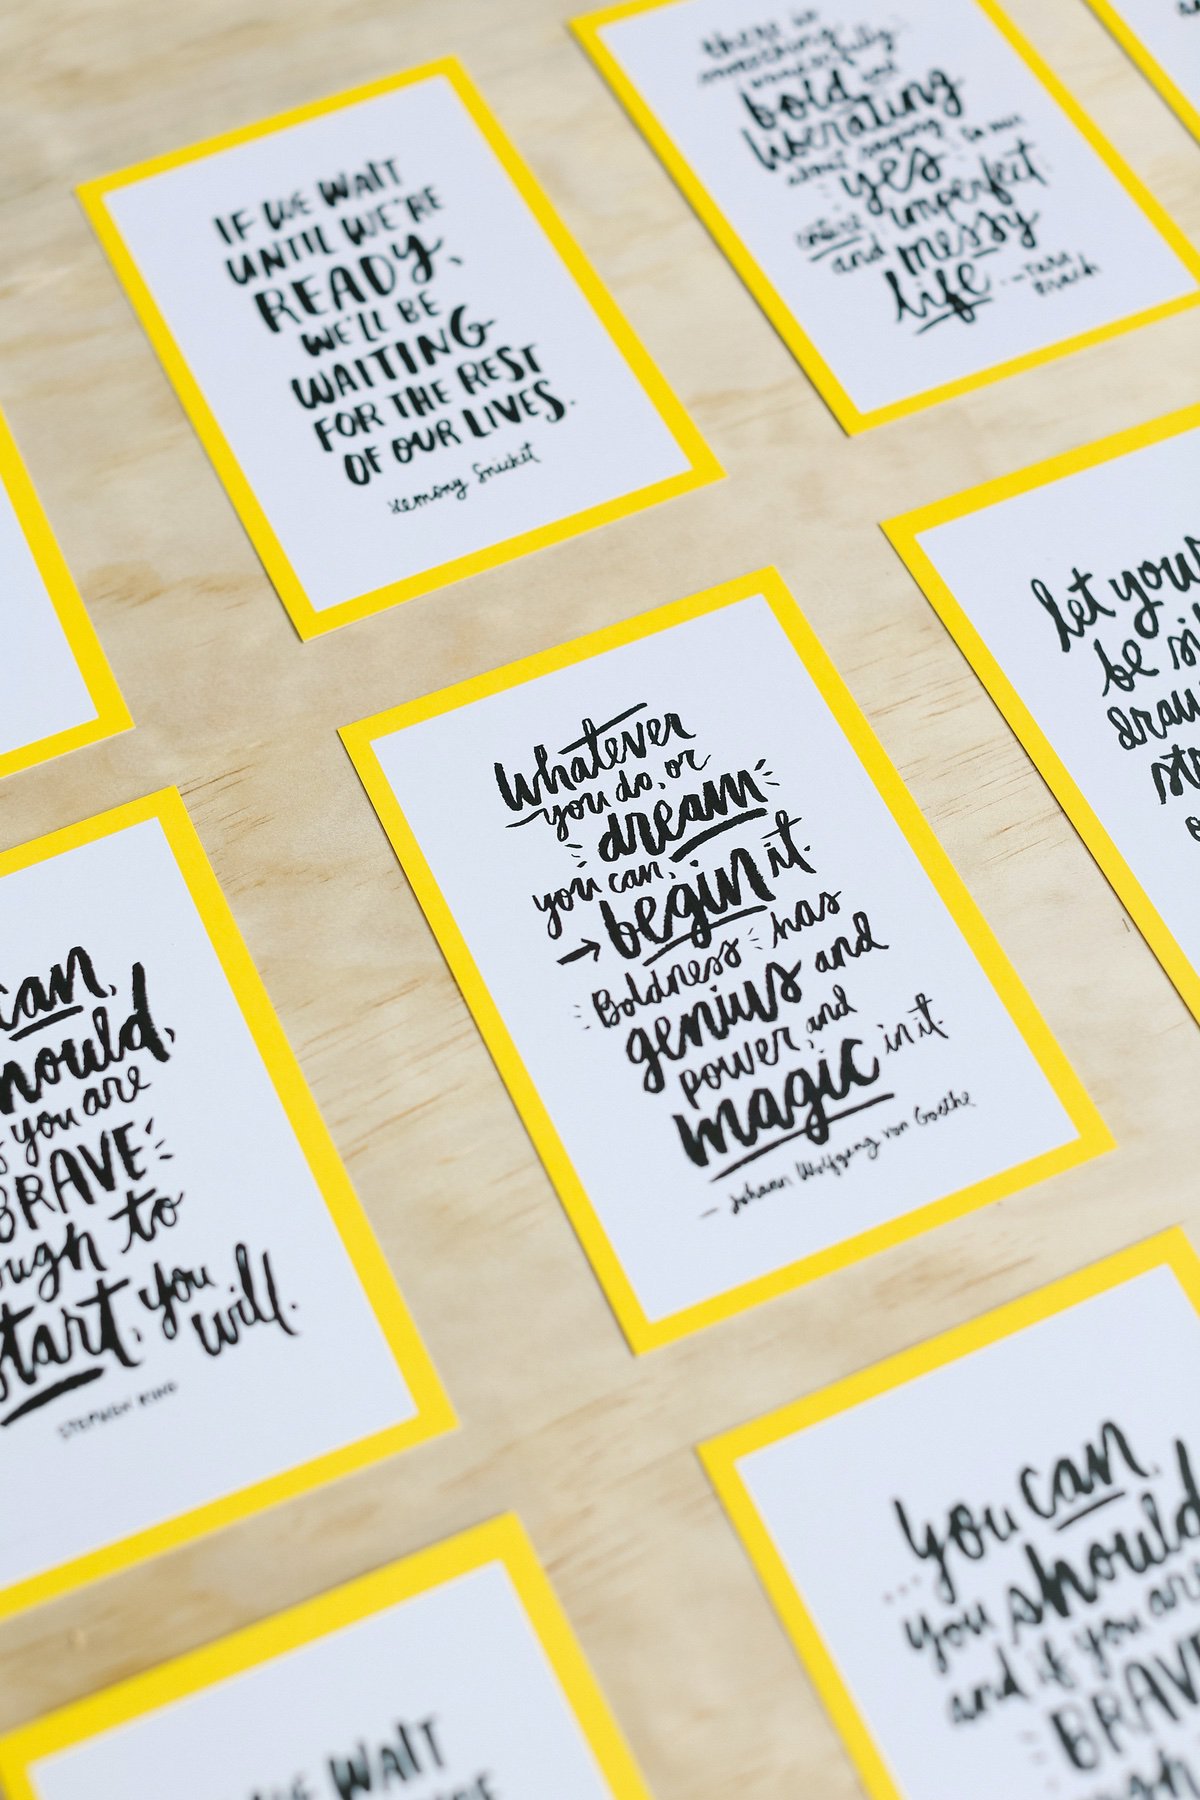 IF WE WAIT
UNTIL WE'RE
READY,
WE'LL BE
WAITING
FOR THE REST
OF OUR LIVES.
Lemony Snicket
there is
something
wonderfully
bold and
liberating
about saying
yes to our
entire imperfect
and messy
life. -- Tara
Brach
let your
be
Whatever
you do, or
dream
you can,
→ begin it.
Boldness has
genius and
power, and
magic in it.
— Johann Wolfgang von Goethe
can,
should,
you are
BRAVE
to
start, you
will.
STEPHEN KING
you can,
you should
and if you are
BRAVE
WE WAIT